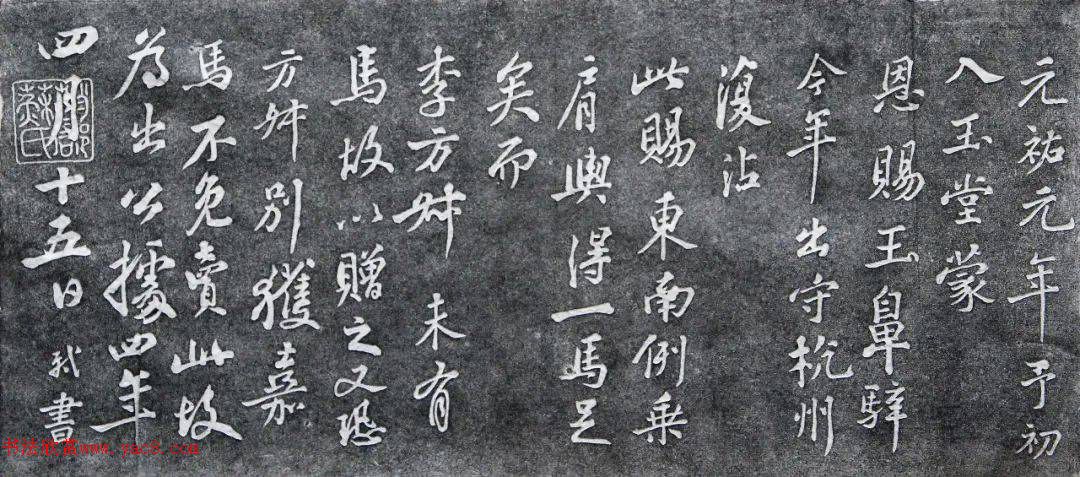 元祐元年予初
入玉堂蒙
恩賜玉鼻騂
今年出守杭州
復沾
此賜東南例乗
肩輿得一馬足
矣而
李方叔未有
馬故以贈之又恐
方叔別獲嘉
馬不免賣此故
為出公據四年
四月十五日 軾書
书法欣赏www.yac8.com